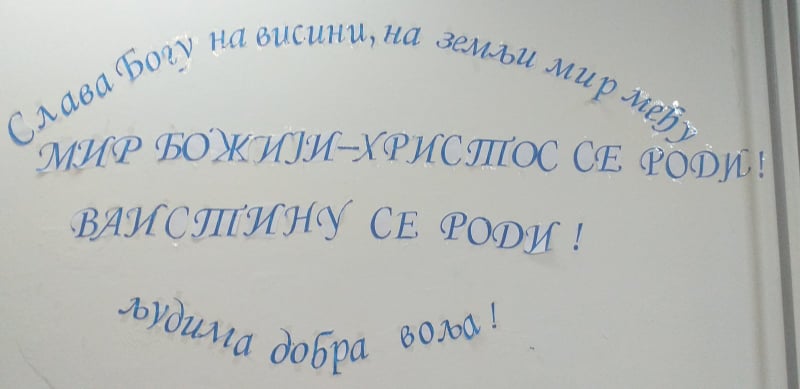 Слава Богу на висини, на земљи мир међу
МИР БОЖИЈИ-ХРИСТОС СЕ РОДИ!
ВАИСТИНУ СЕ РОДИ!
људима добра воља!